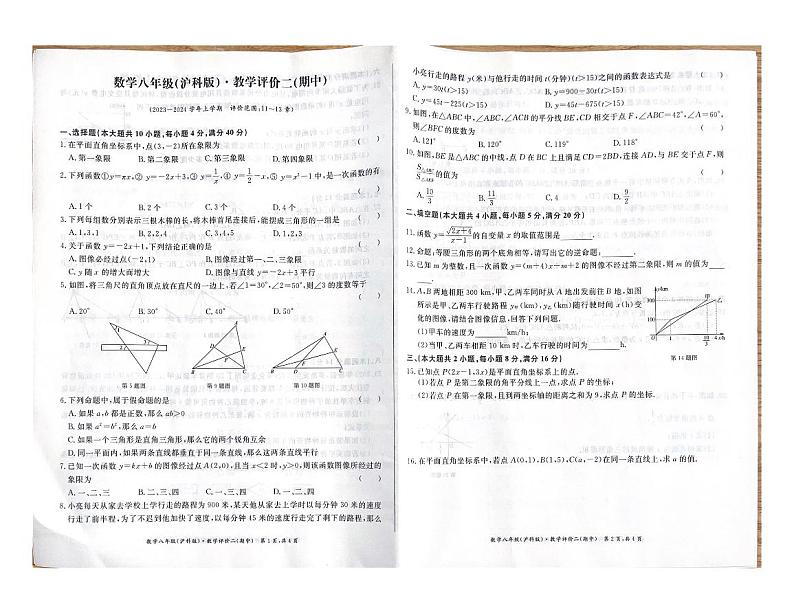 数学八年级(沪科版)·教学评价二(期中)
(2023—2024学年上学期 评价范围:11~13章)
一、选择题(本大题共10小题,每小题4分,满分40分)
1.在平面直角坐标系中,点(3,-2)所在象限为 ( )
A.第一象限 B.第二象限 C.第三象限 D.第四象限
2.下列函数①y=πx,② y=-2x+3,③ y=1/x,④ y=1/2-x,⑤ y=x²-1中,是一次函数的有
( )
A.1个 B.2个 C.3个 D.4个
3.下列每组数分别表示三根木棒的长,将木棒首尾连接后,能摆成三角形的一组是 ( )
A.1,3,1 B.2,2,3 C.3,4,5 D.1,2,3
4.关于函数y=-2x+1,下列结论正确的是 ( )
A.图像必经过点(-2,1) B.图像经过第一、二、三象限
C.y随x的增大而增大 D.图像与直线y=-2x+3平行
5.如图,将三角尺的直角顶点放在直尺的一边上,若∠1=30°,∠2=50°,则∠3的度数等于
( )
A.20° B.30° C.40° D.50°
第5题图 第9题图 第10题图
6.下列命题中,属于假命题的是 ( )
A.如果a,b都是正数,那么ab>0
B.如果a²=b²,那么a=b
C.如果一个三角形是直角三角形,那么它的两个锐角互余
D.同一平面内,如果两条直线都垂直于同一条直线,那么这两条直线平行
7.已知一次函数y=kx+b的图像经过点A(2,0),且当x<2时,y>0,则该函数图像所经过的
象限为 ( )
A.一、二、三 B.二、三、四 C.一、三、四 D.一、二、四
8.小亮每天从家去学校上学行走的路程为900米,某天他从家去上学时以每分钟30米的速度
行走了前半程,为了不迟到他加快了速度,以每分钟45米的速度行走完了剩下的路程,那么
数学八年级(沪科版)·教学评价二(期中) 第1页,共4页
小亮行走的路程y(米)与他行走的时间t(分钟)(t>15)之间的函数表达式是 ( )
A.y=30t(t>15) B.y=900-30t(t>15)
C.y=45t-225(t>15) D.y=45t-675(t>15)
9.如图,在△ABC中,∠ABC,∠ACB的平分线BE,CD相交于点F,∠ABC=42°,∠A=60°,
则∠BFC的度数为 ( )
A.121° B.120° C.119° D.118°
10.如图,BE是△ABC的中线,点D在BC上且满足CD=2BD,连接AD,与BE交于点F,则
S△ABC/S△BDF的值为 ( )
A.10/3 B.11/3 C.4 D.9/2
二、填空题(本大题共4小题,每小题5分,满分20分)
11.函数y=√(2x+4)/(x-1)的自变量x的取值范围是________.
12.命题:等腰三角形的两个底角相等,请写出它的逆命题:________.
13.已知m为整数,且一次函数y=(m+4)x+m+2的图像不经过第二象限,则m的值为____
____.
14.A,B两地相距300 km,甲、乙两车同时从A地出发前往B地,如图
所示是甲、乙两车行驶路程y甲(km),y乙(km)随行驶时间x(h)变
化的图像,请结合图像信息,回答下列问题.
(1)甲车的速度为________km/h;
(2)当甲、乙两车相距10 km时,乙车行驶的时间为________h.
y/km
300
甲
乙
O 1 10/3 4 x/h
第14题图
三、(本大题共2小题,每小题8分,满分16分)
15.已知点P(2x-1,3x)是平面直角坐标系上的点.
(1)若点P是第二象限的角平分线上一点,求点P的坐标;
(2)若点P在第一象限,且到两坐标轴的距离之和为9,求点P的坐标.
16.在平面直角坐标系中,若点A(0,1),B(1,5),C(a,-2)在同一条直线上,求a的值.
数学八年级(沪科版)·教学评价二(期中) 第2页,共4页